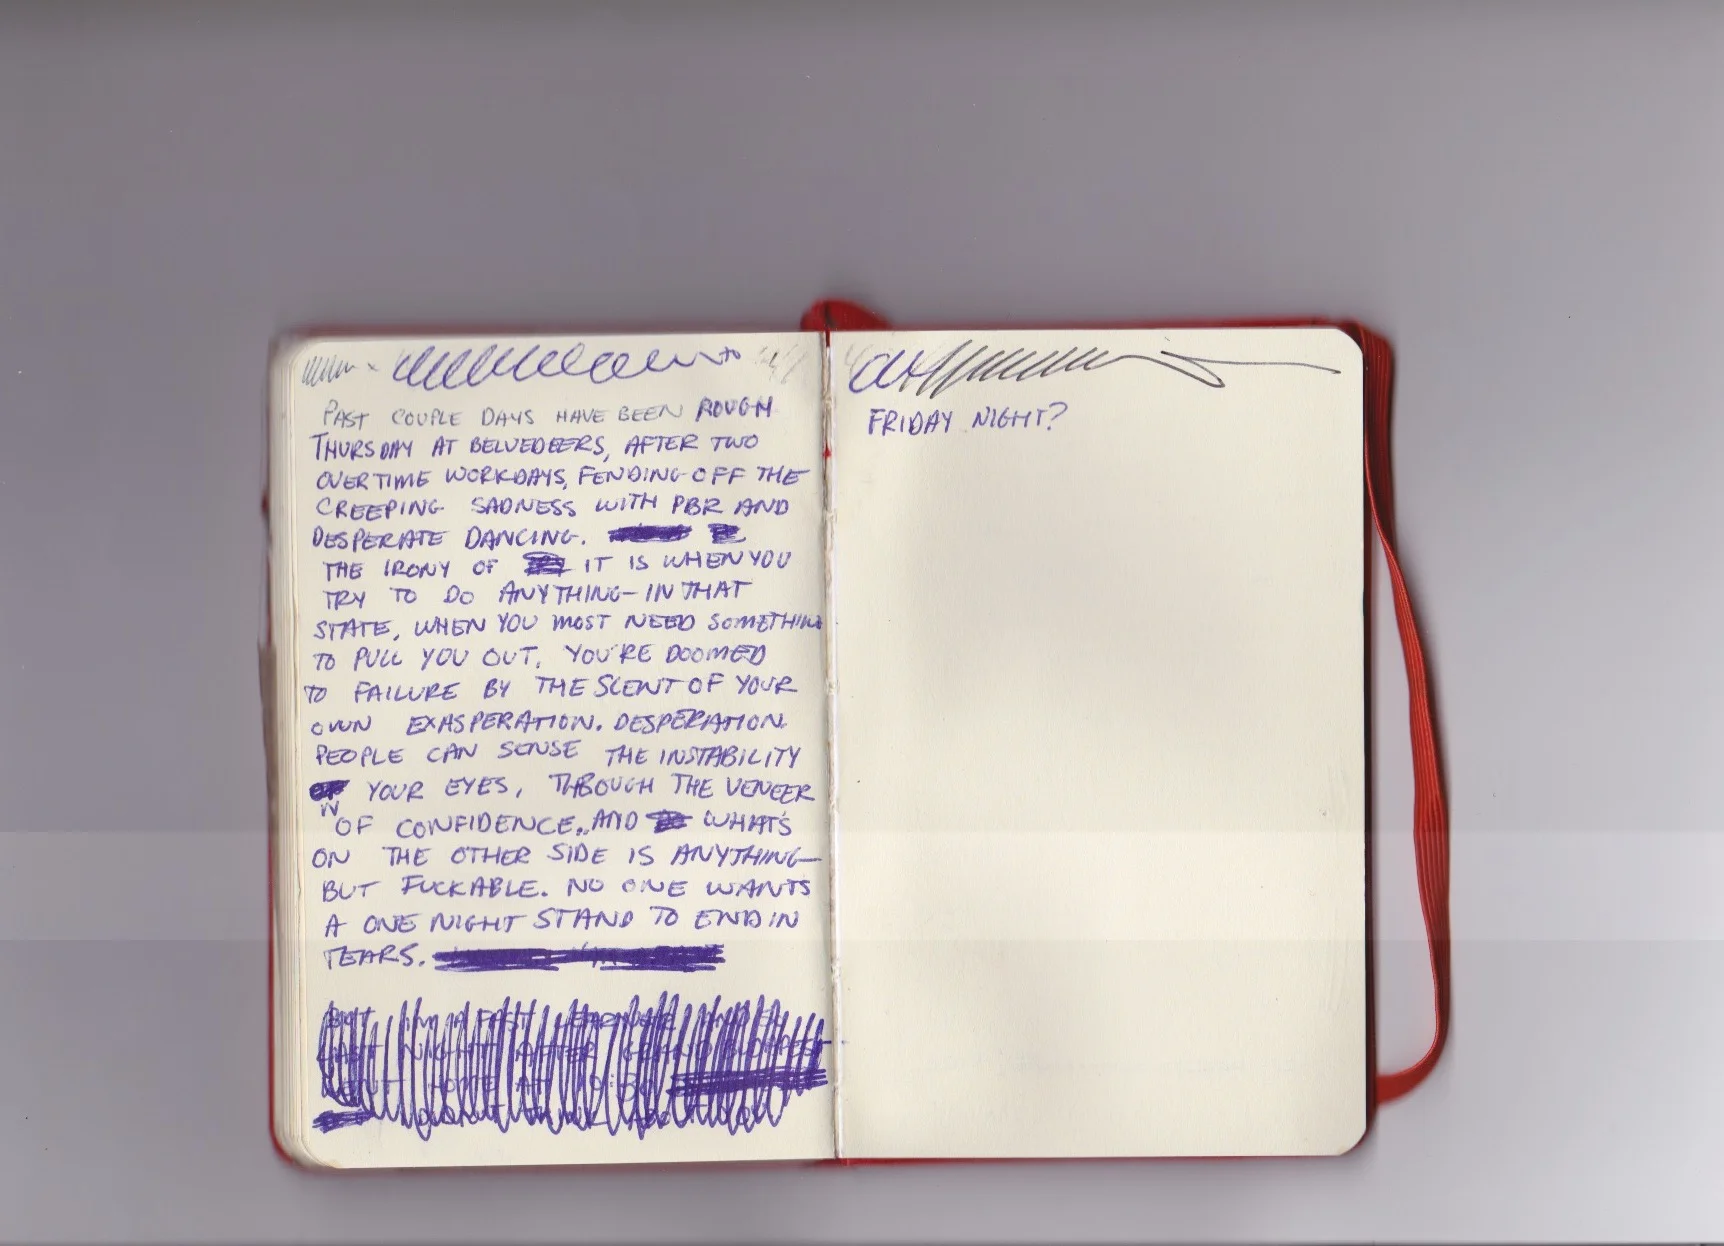 PAST COUPLE DAYS HAVE BEEN ROUGH
THURSDAY AT BELVEDEERS, AFTER TWO
OVERTIME WORKDAYS, FENDING OFF THE
CREEPING SADNESS WITH PBR AND
DESPERATE DANCING.
THE IRONY OF IT IS WHEN YOU
TRY TO DO ANYTHING IN THAT
STATE, WHEN YOU MOST NEED SOMETHING
TO PULL YOU OUT, YOU'RE DOOMED
TO FAILURE BY THE SCENT OF YOUR
OWN EXASPERATION. DESPERATION.
PEOPLE CAN SENSE THE INSTABILITY
IN YOUR EYES, THROUGH THE VENEER
OF CONFIDENCE. AND WHAT'S
ON THE OTHER SIDE IS ANYTHING
BUT FUCKABLE. NO ONE WANTS
A ONE NIGHT STAND TO END IN
TEARS.
BUT I'M A FAST LEARNER
LAST NIGHT AFTER
WENT HOME AT
FRIDAY NIGHT?